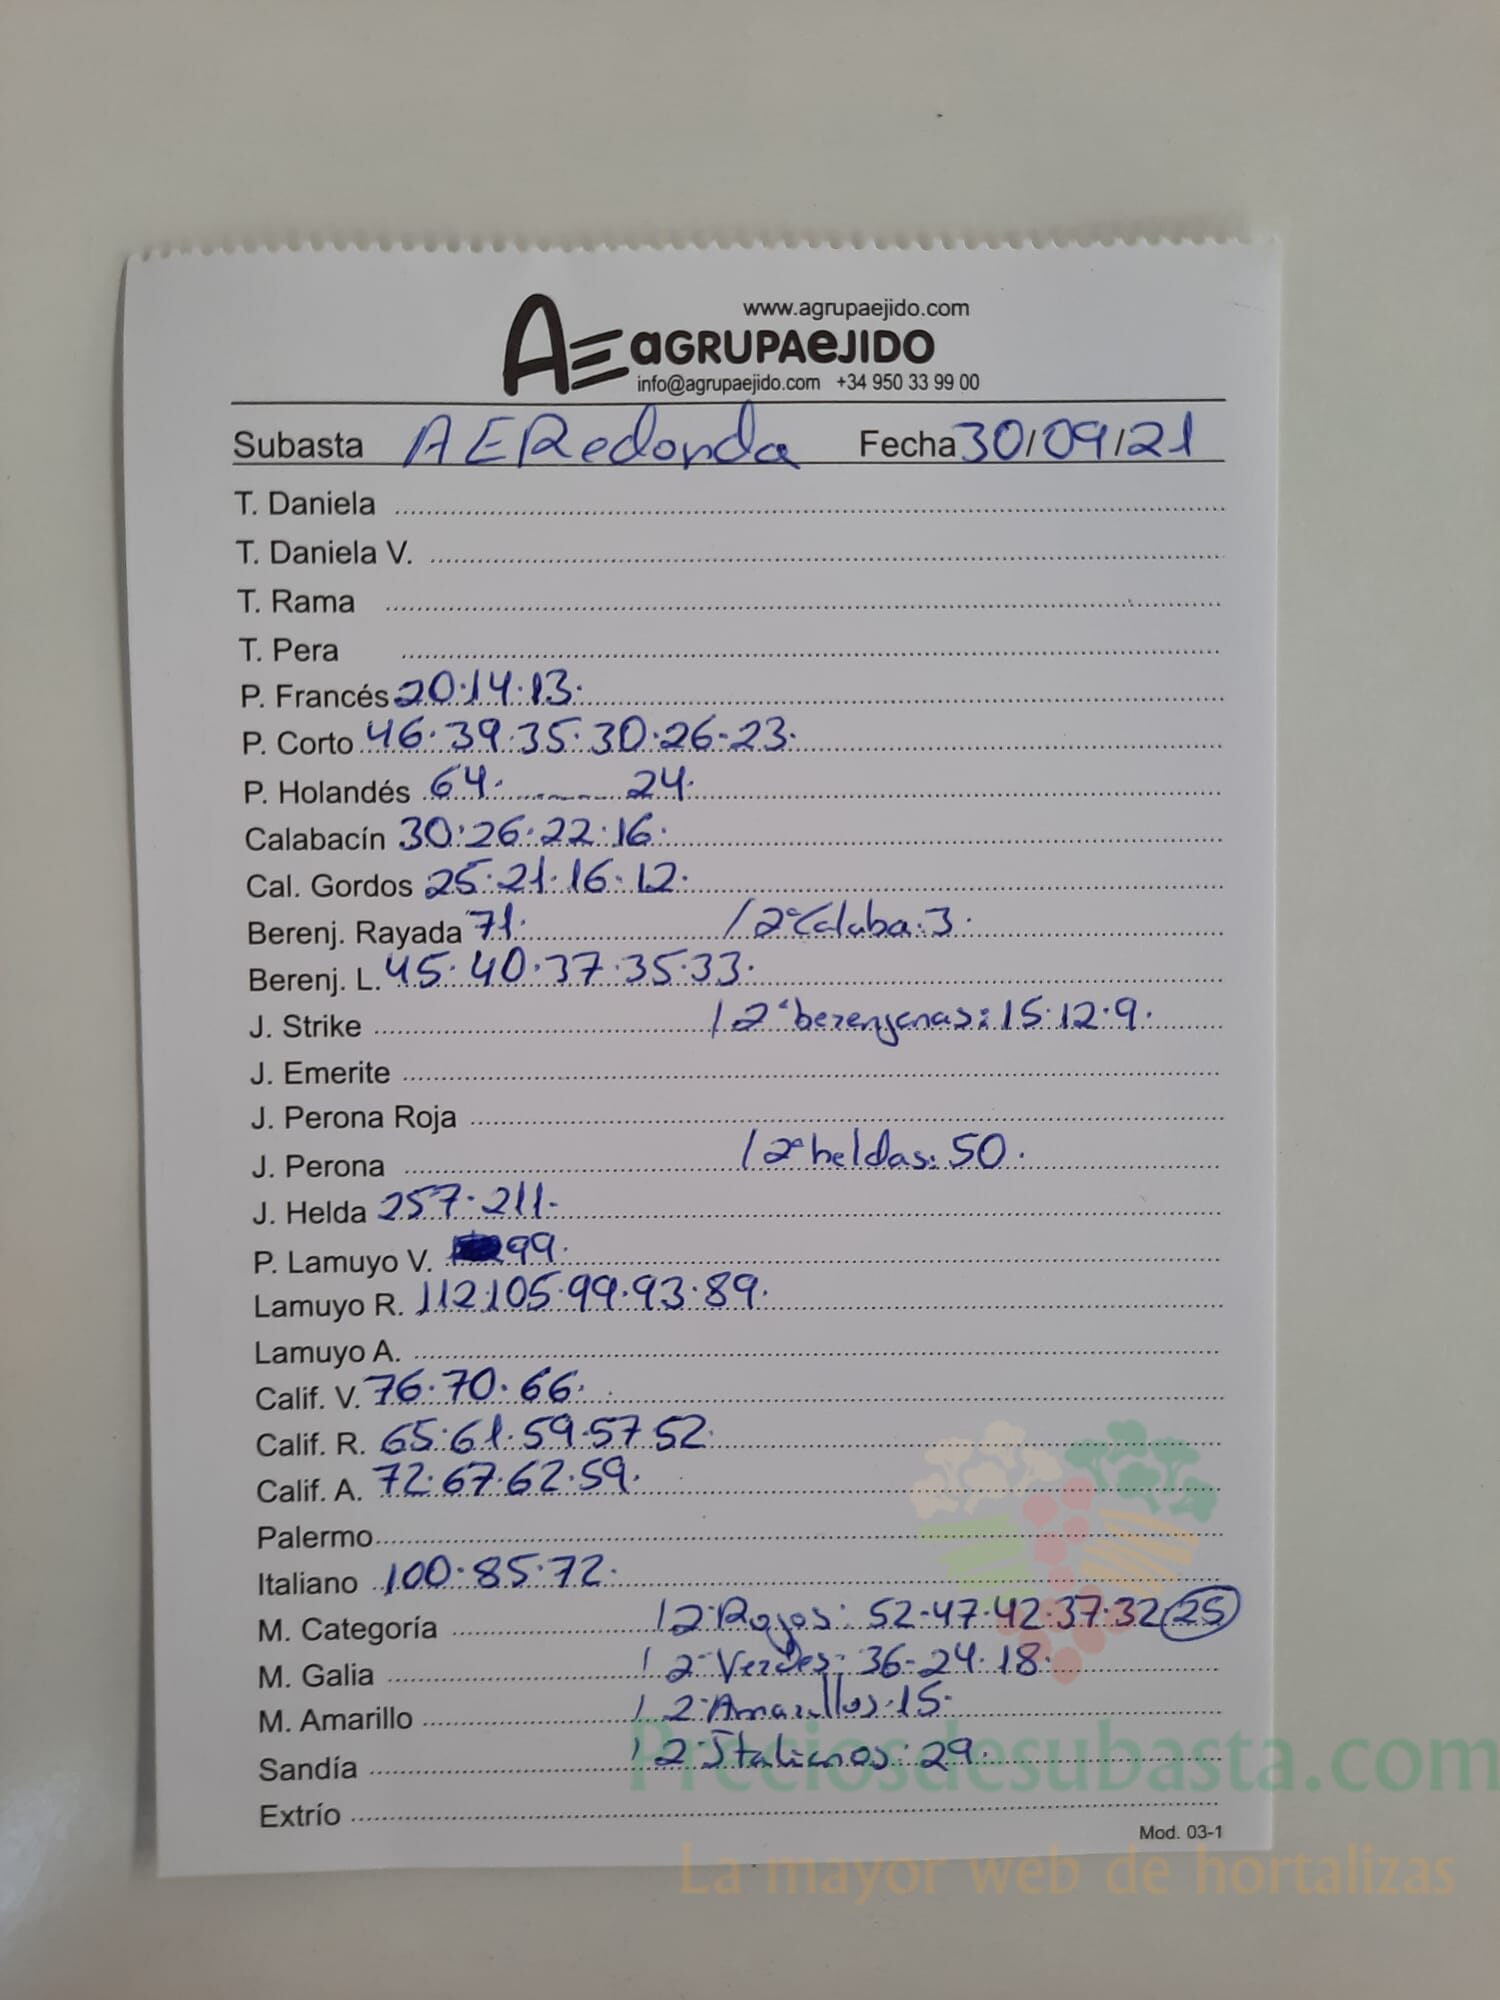 www.agrupaejido.com
AE aGRUPAeJIDO
info@agrupaejido.com +34 950 33 99 00
Subasta AERedonda Fecha 30/09/21
T. Daniela
T. Daniela V.
T. Rama
T. Pera
P. Francés 20·14·13·
P. Corto 46·39·35·30·26·23·
P. Holandés 64·____24·
Calabacín 30·26·22·16·
Cal. Gordos 25·21·16·12·
Berenj. Rayada 71· / 2ª Calaba: 3·
Berenj. L. 45·40·37·35·33·
J. Strike / 2ª berenjenas: 15·12·9·
J. Emerite
J. Perona Roja
J. Perona / 2ª heldas: 50·
J. Helda 257·211·
P. Lamuyo V. 99·
Lamuyo R. 112·105·99·93·89·
Lamuyo A.
Calif. V. 76·70·66·
Calif. R. 65·61·59·57·52·
Calif. A. 72·67·62·59·
Palermo
Italiano 100·85·72·
M. Categoría / 2ª Rojos: 52·47·42·37·32 25
M. Galia / 2ª Verdes: 36·24·18·
M. Amarillo / 2ª Amarillos·15·
Sandía / 2ª Italianos: 29·
Extrío
Mod. 03-1
Preciosdesubasta.com
La mayor web de hortalizas